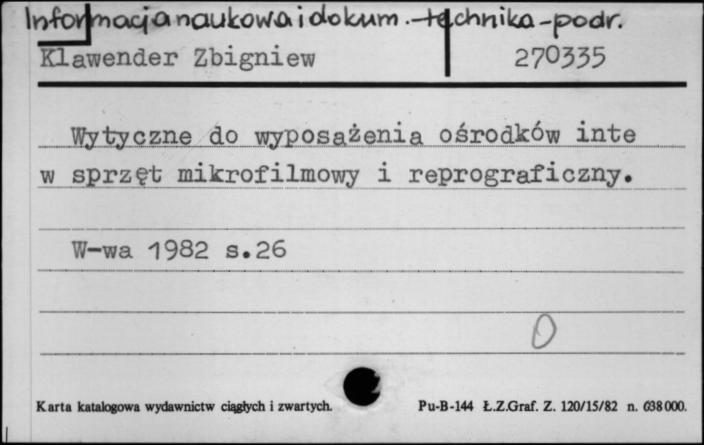 Informacja naukowa i dokum. - technika - podr.
Klawender Zbigniew 270335
Wytyczne do wyposażenia ośrodków inte
w sprzęt mikrofilmowy i reprograficzny.
W-wa 1982 s.26
0
Karta katalogowa wydawnictw ciągłych i zwartych. Pu-B-144 Ł.Z.Graf. Z. 120/15/82 n. 638000.